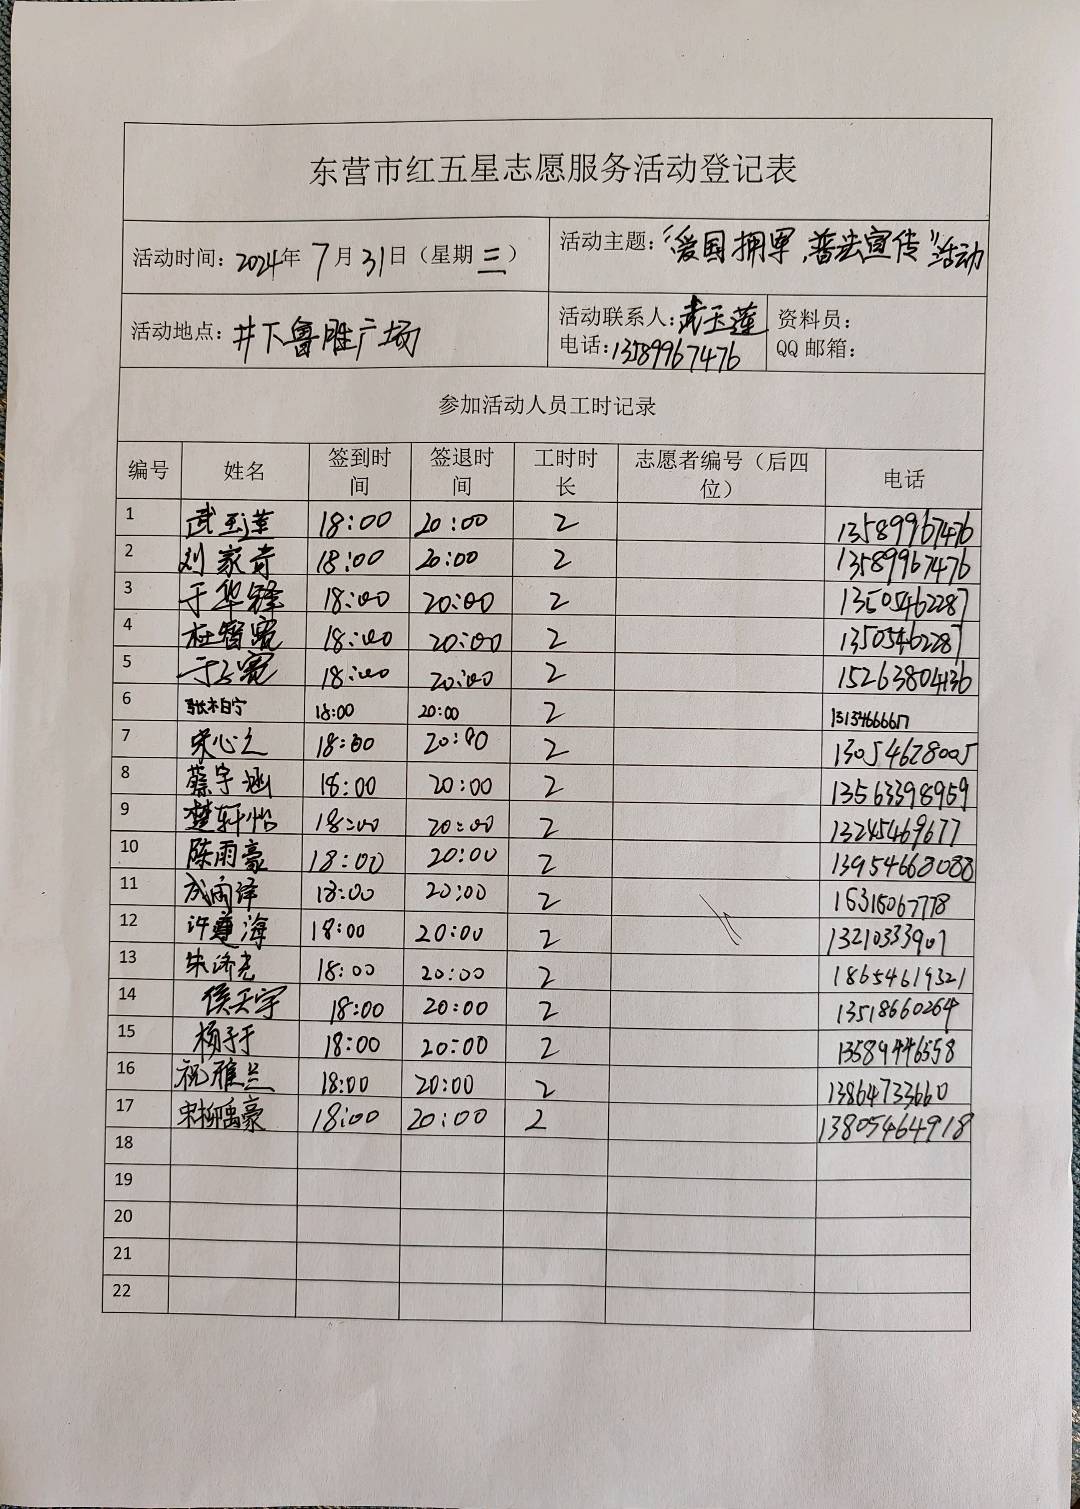 东营市红五星志愿服务活动登记表
活动时间：2024年7月31日（星期三） 活动主题：“爱国拥军，普法宣传”活动
活动地点：井下鲁胜广场 活动联系人：武玉莲 资料员：
电话：13589967476 QQ邮箱：
参加活动人员工时记录
编号 姓名 签到时间 签退时间 工时时长 志愿者编号（后四位） 电话
1 武玉莲 18:00 20:00 2 13589967476
2 刘家奇 18:00 20:00 2 13589967476
3 于华锋 18:00 20:00 2 13505462287
4 杜智宽 18:00 20:00 2 13505462287
5 18:00 20:00 2 15263804136
6 18:00 20:00 2
7 宋心之 18:00 20:00 2 13054628005
8 蔡宇涵 18:00 20:00 2 13563398959
9 楚轩怡 18:00 20:00 2 13245469677
10 陈雨豪 18:00 20:00 2 13954668088
11 成雨泽 18:00 20:00 2 15315067778
12 许尊海 18:00 20:00 2 13210333907
13 朱济尧 18:00 20:00 2 18654619321
14 侯天宇 18:00 20:00 2 13518660264
15 杨子于 18:00 20:00 2 13589446558
16 祝雅兰 18:00 20:00 2 13864733660
17 宋柳禹豪 18:00 20:00 2 13805464918
18
19
20
21
22